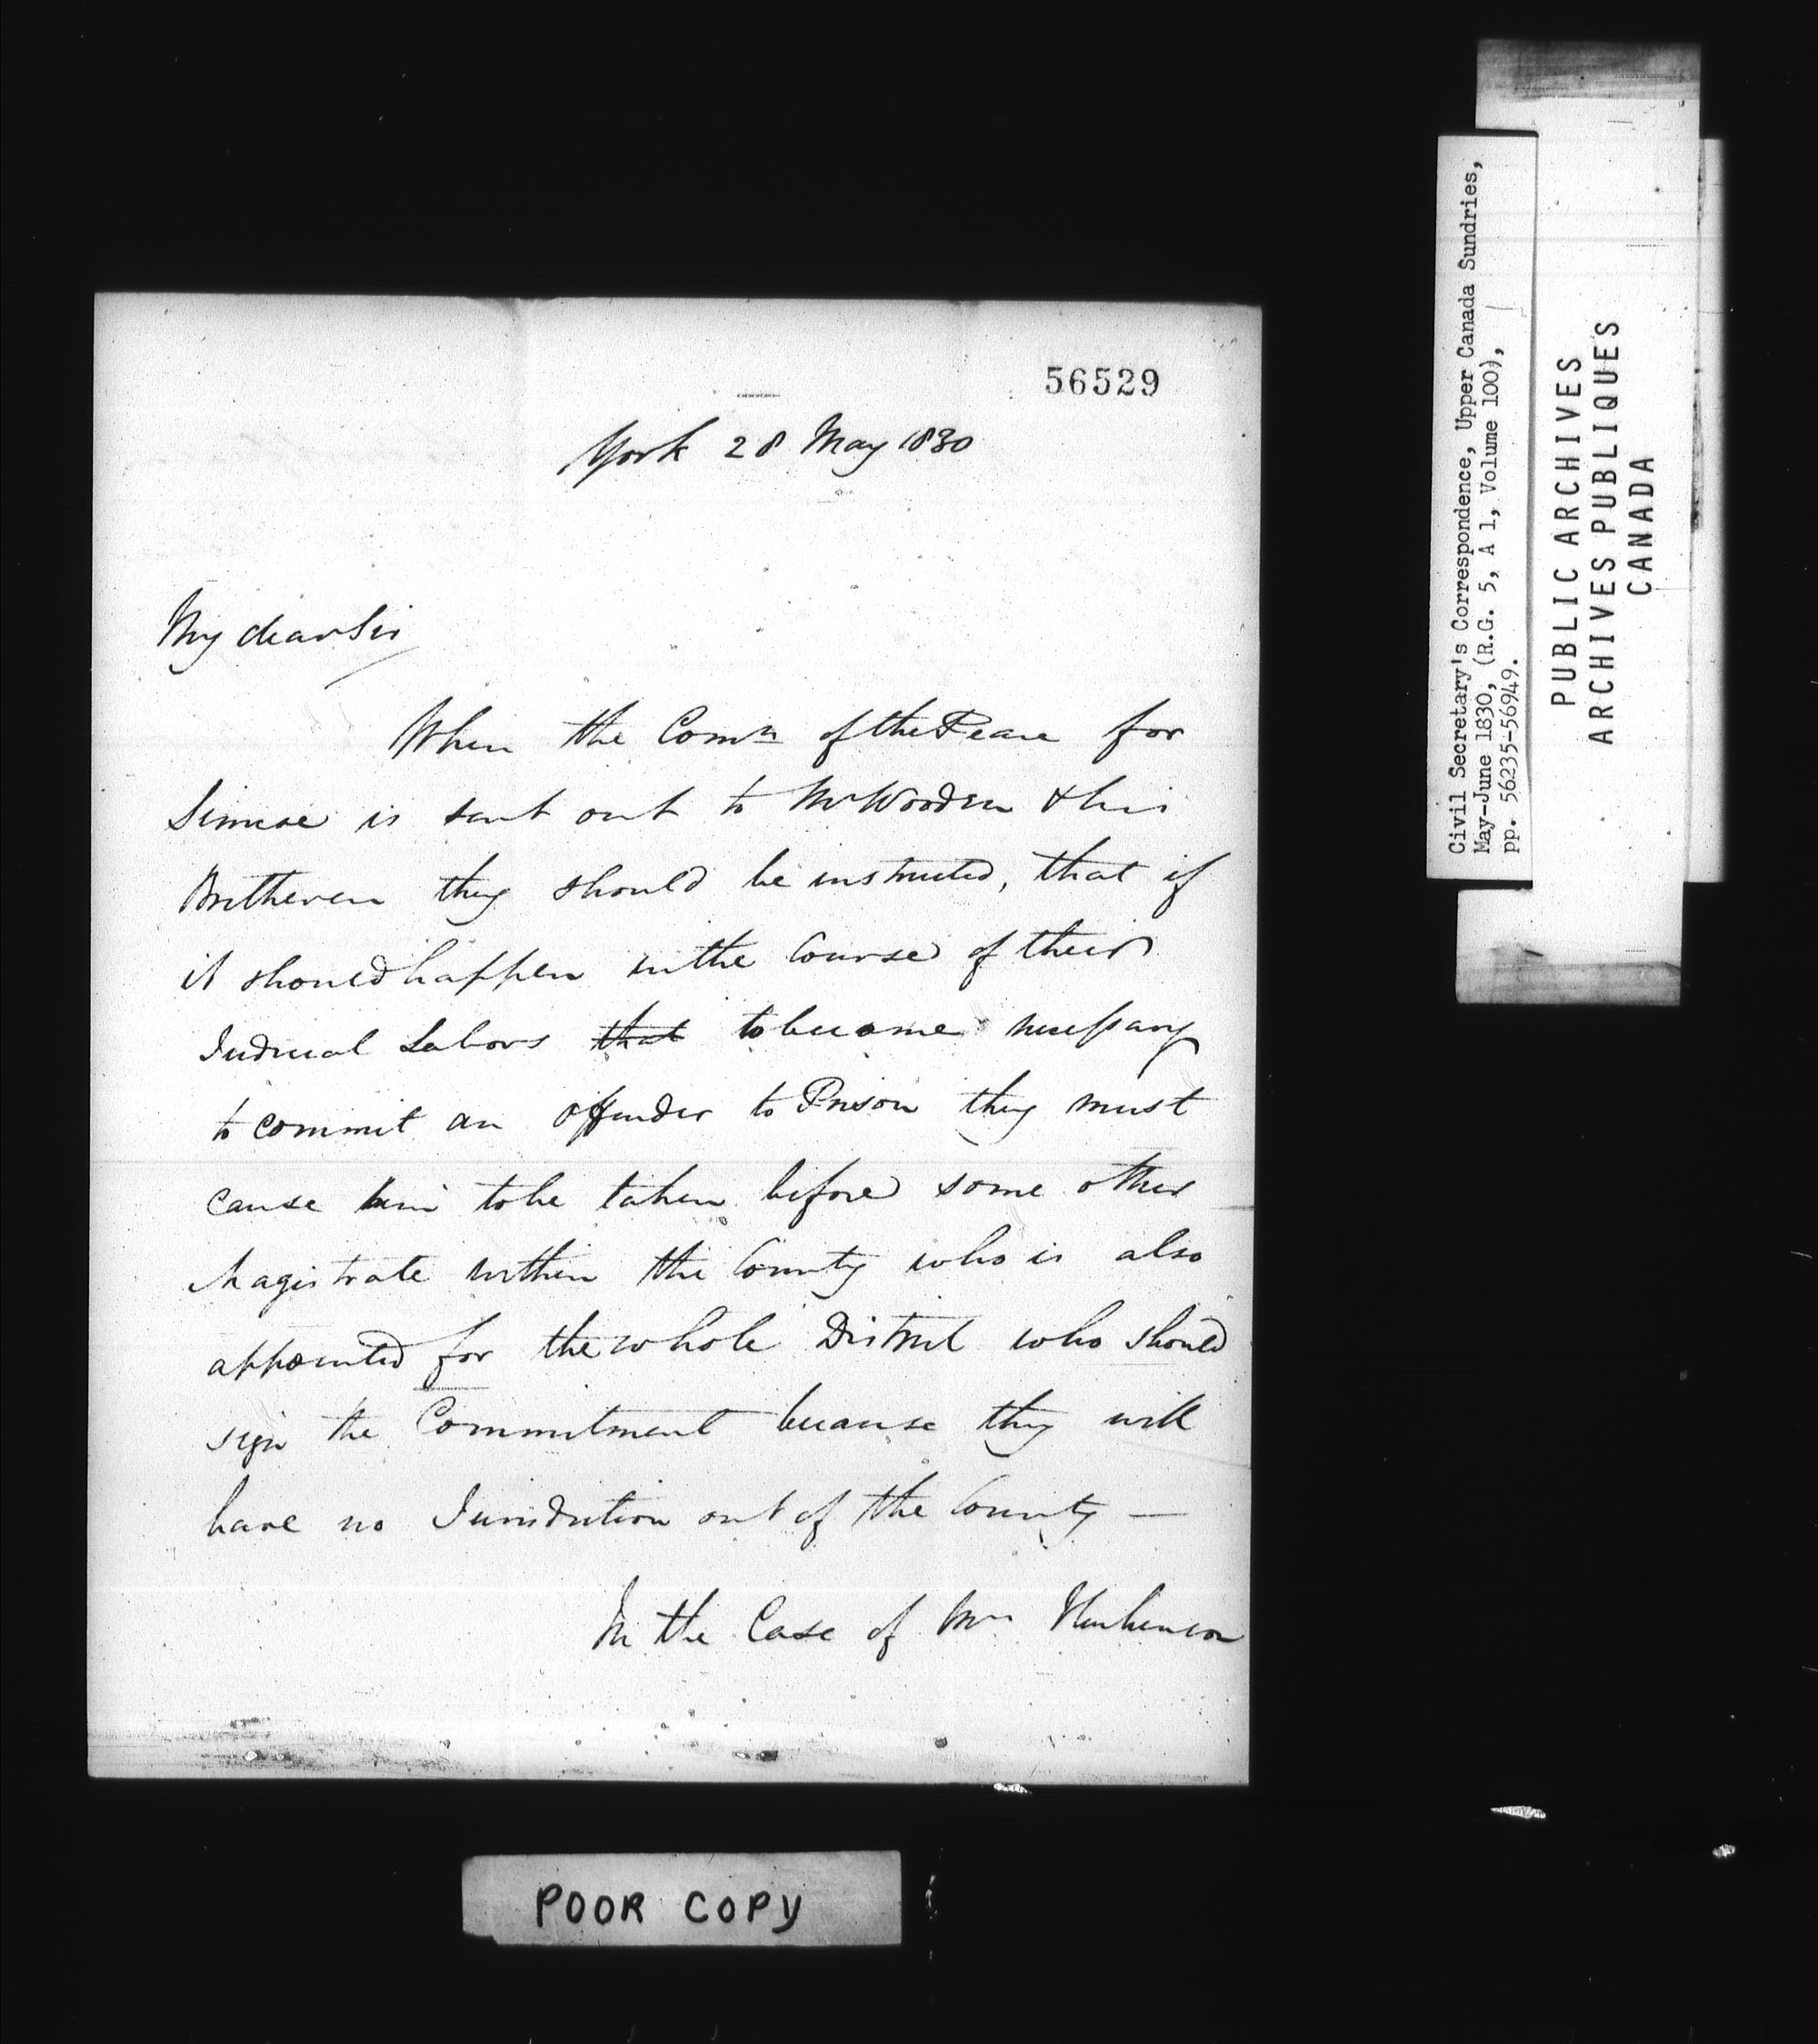 56529
York 28 May 1830
My dear Sir
When the Comn of the Peace for
Simcoe is sent out to Mr Wooden & his
Bretheren they should be instructed, that if
it should happen in the Course of their
Judicial Labors that to become necessary
to commit an offender to Prison they must
cause him to be taken before some other
Magistrate within the County who is also
appointed for the whole District who should
sign the Commitment because they will
have no Jurisdiction out of the County —
In the Case of Mrs
POOR COPY
Civil Secretary's Correspondence, Upper Canada Sundries,
May-June 1830, (R.G. 5, A 1, Volume 100),
pp. 56235-56949.
PUBLIC ARCHIVES
ARCHIVES PUBLIQUES
CANADA